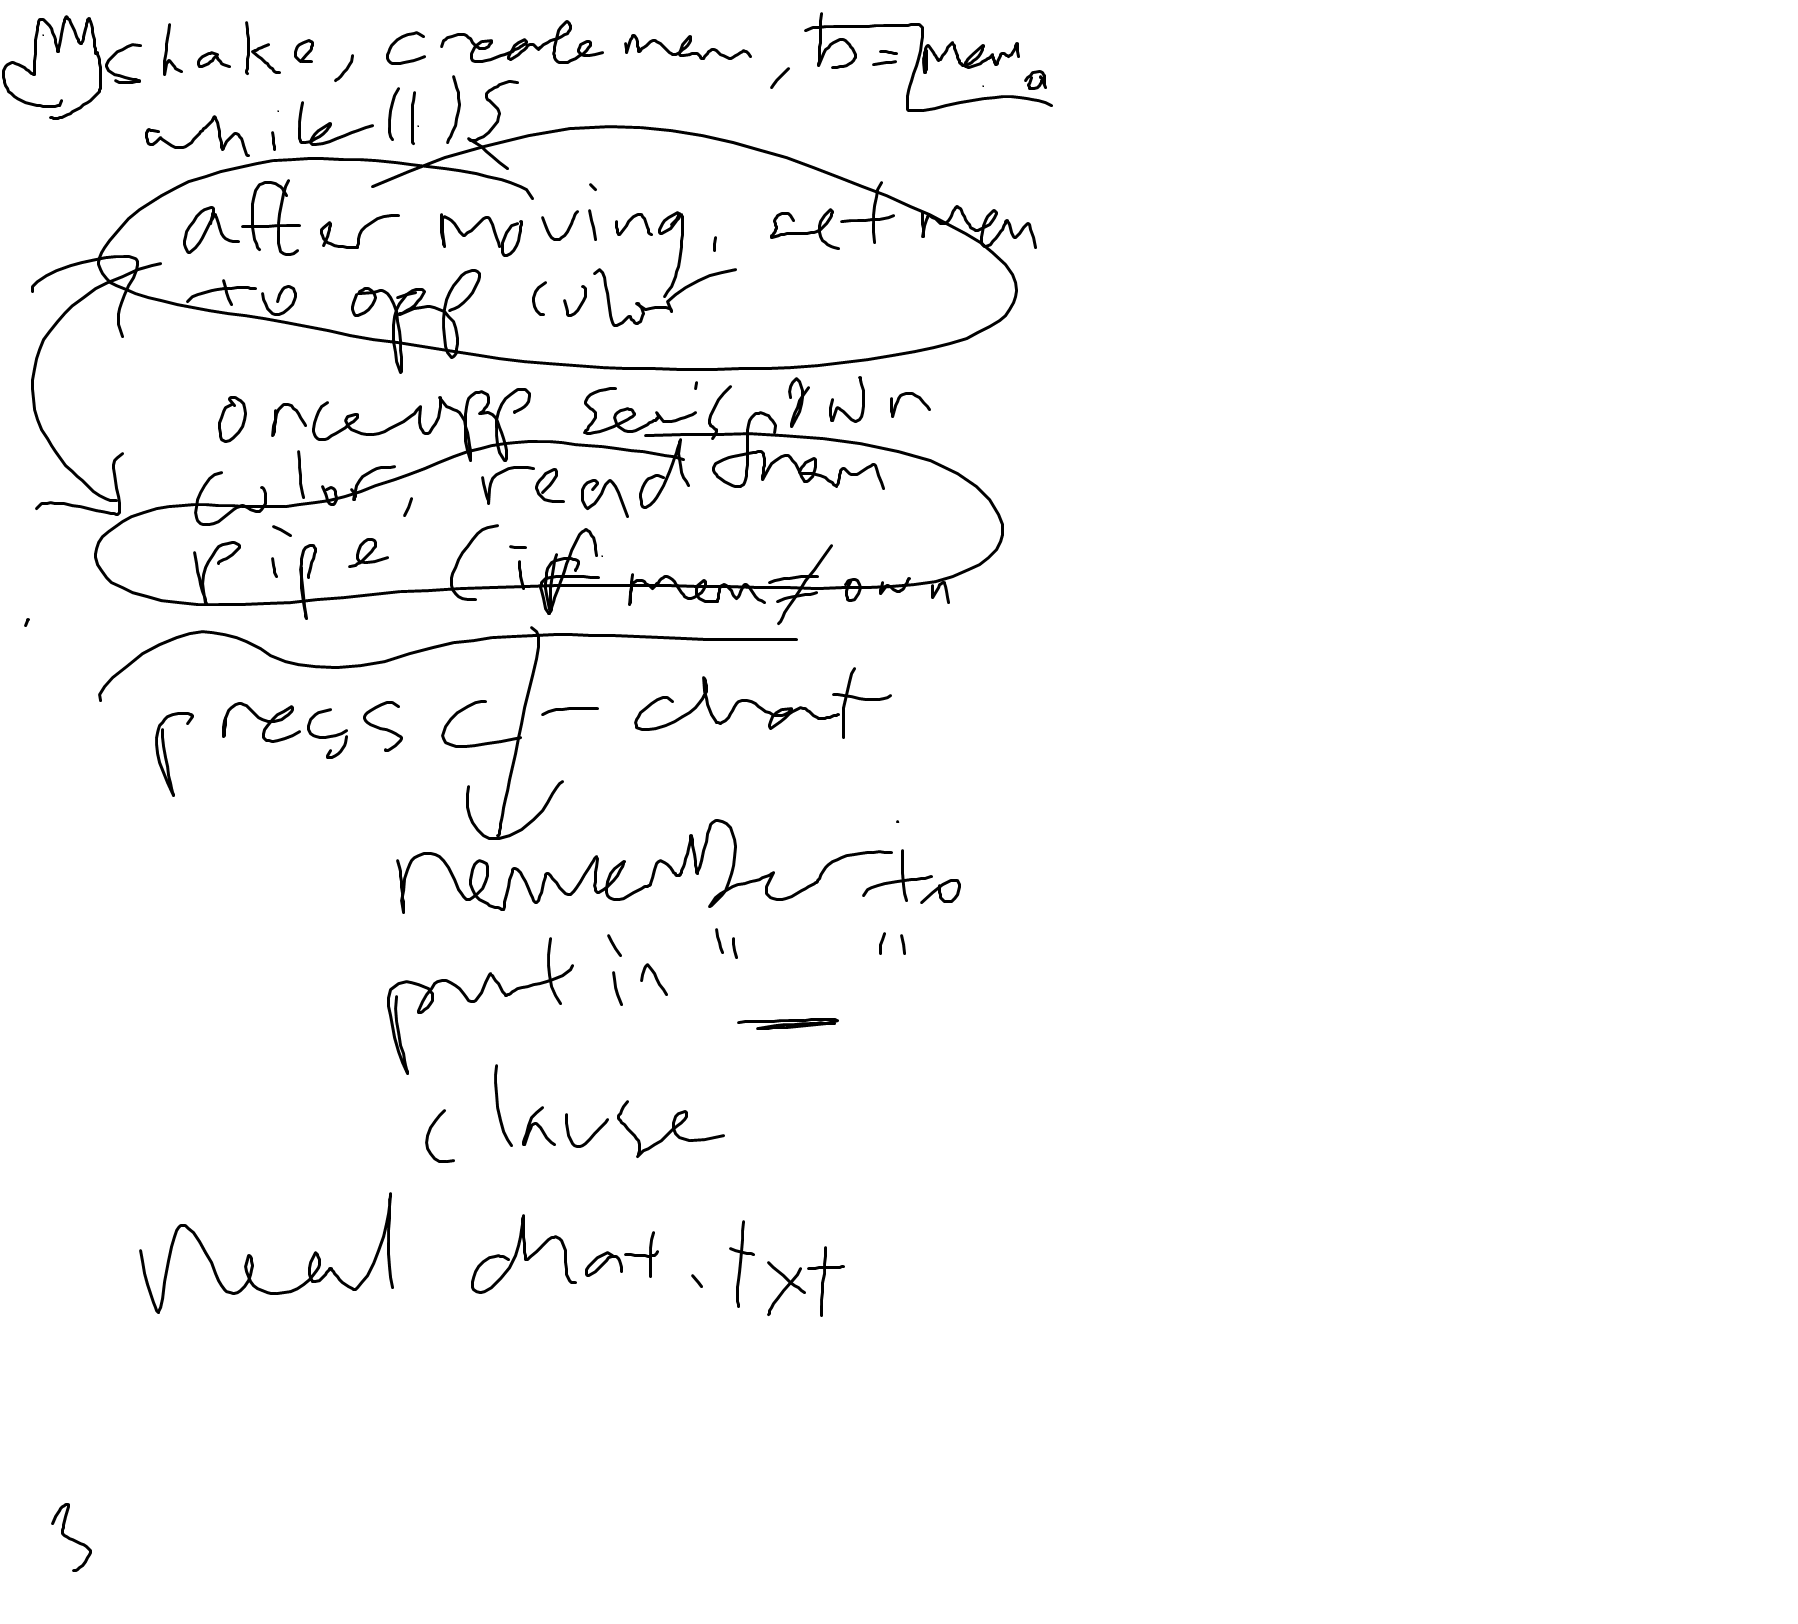 shake, create mem, b = mem
while(1){
after moving, set mem
to opp color
once opp sees own
color, read from
pipe (if mem ≠ own
press c - chat
remember to
put in " "
clause
read chat.txt
}